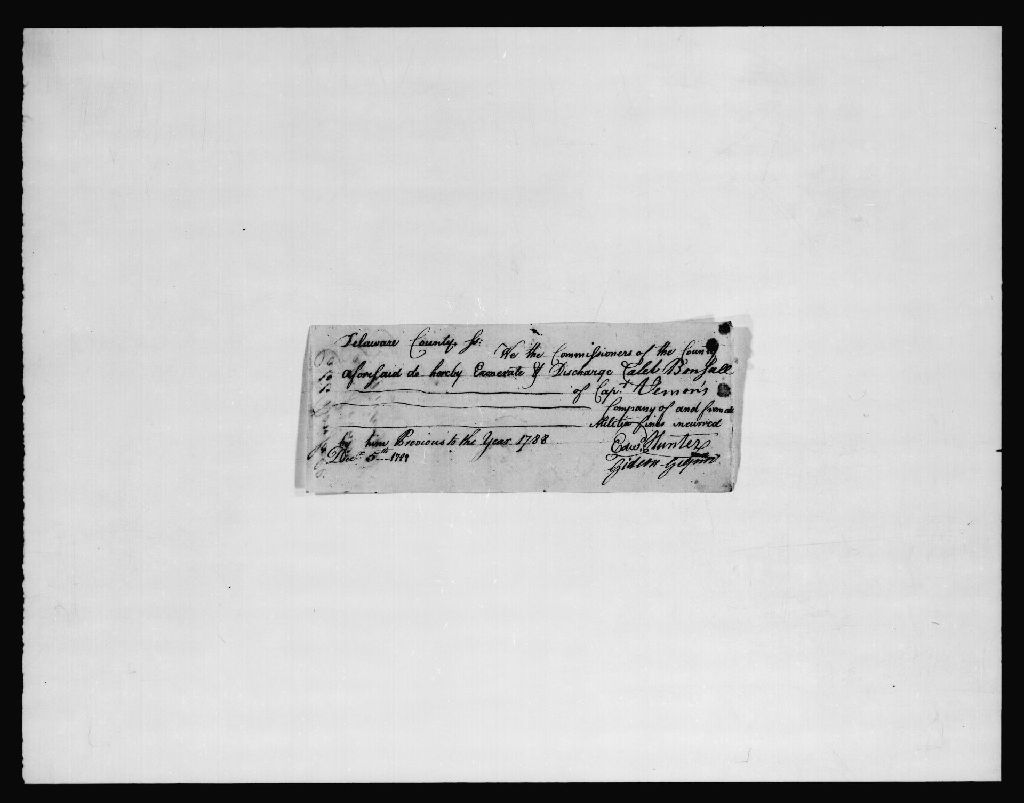 Delaware County ss: We the Commissioners of the County
aforesaid do hereby Exonerate & Discharge Caleb Bonsall
of Capt. Vernon's
Company of and from all
Militia fines incurred
by him Previous to the Year 1788
Decr. 5th 1789
Edwd. Hunter
Gideon Gilpin